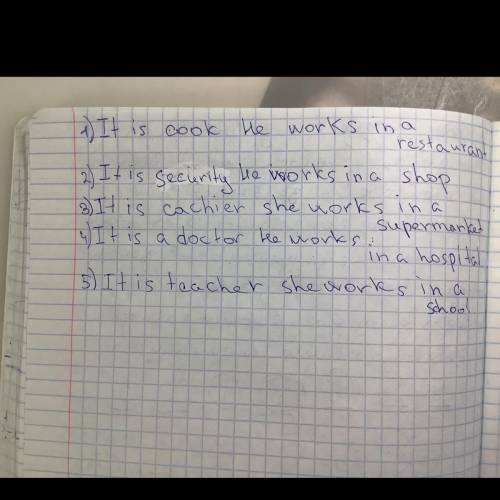 1) It is cook He works in a
restaurant
2) It is security He works in a shop
3) It is cachier she works in a
supermarket
4) It is a doctor He works
in a hospital
5) It is teacher she works in a
school